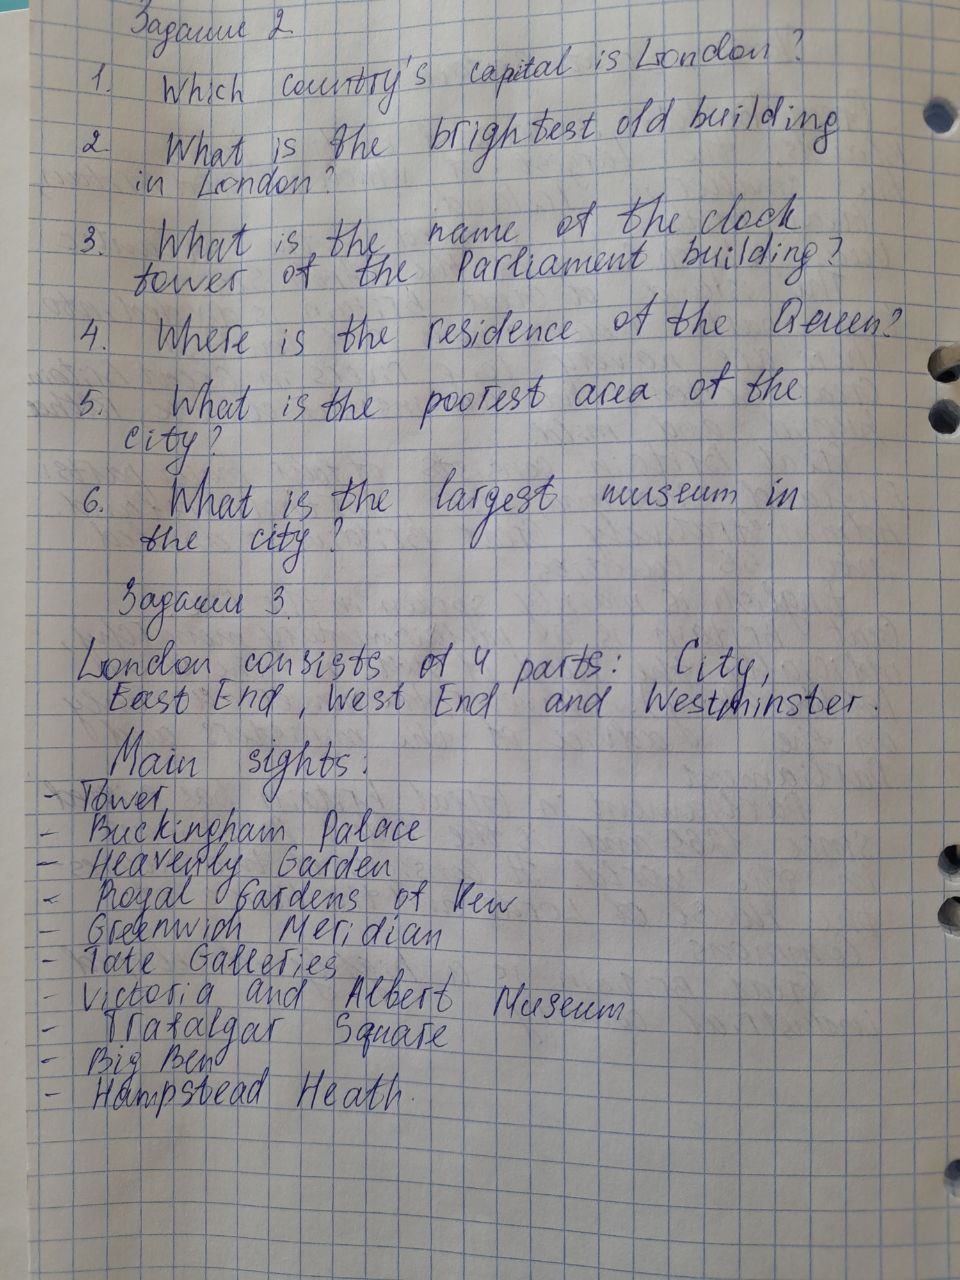 Задание 2
1. Which country's capital is London?
2. What is the brightest old building
in London?
3. What is the name of the clock
tower of the Parliament building?
4. Where is the residence of the Queen?
5. What is the poorest area of the
city?
6. What is the largest museum in
the city?
Задание 3
London consists of 4 parts: City,
East End, West End and Westminster.
Main sights:
- Tower
- Buckingham Palace
- Heavenly Garden
- Royal Gardens of Kew
- Greenwich Meridian
- Tate Galleries
- Victoria and Albert Museum
- Trafalgar Square
- Big Ben
- Hampstead Heath.